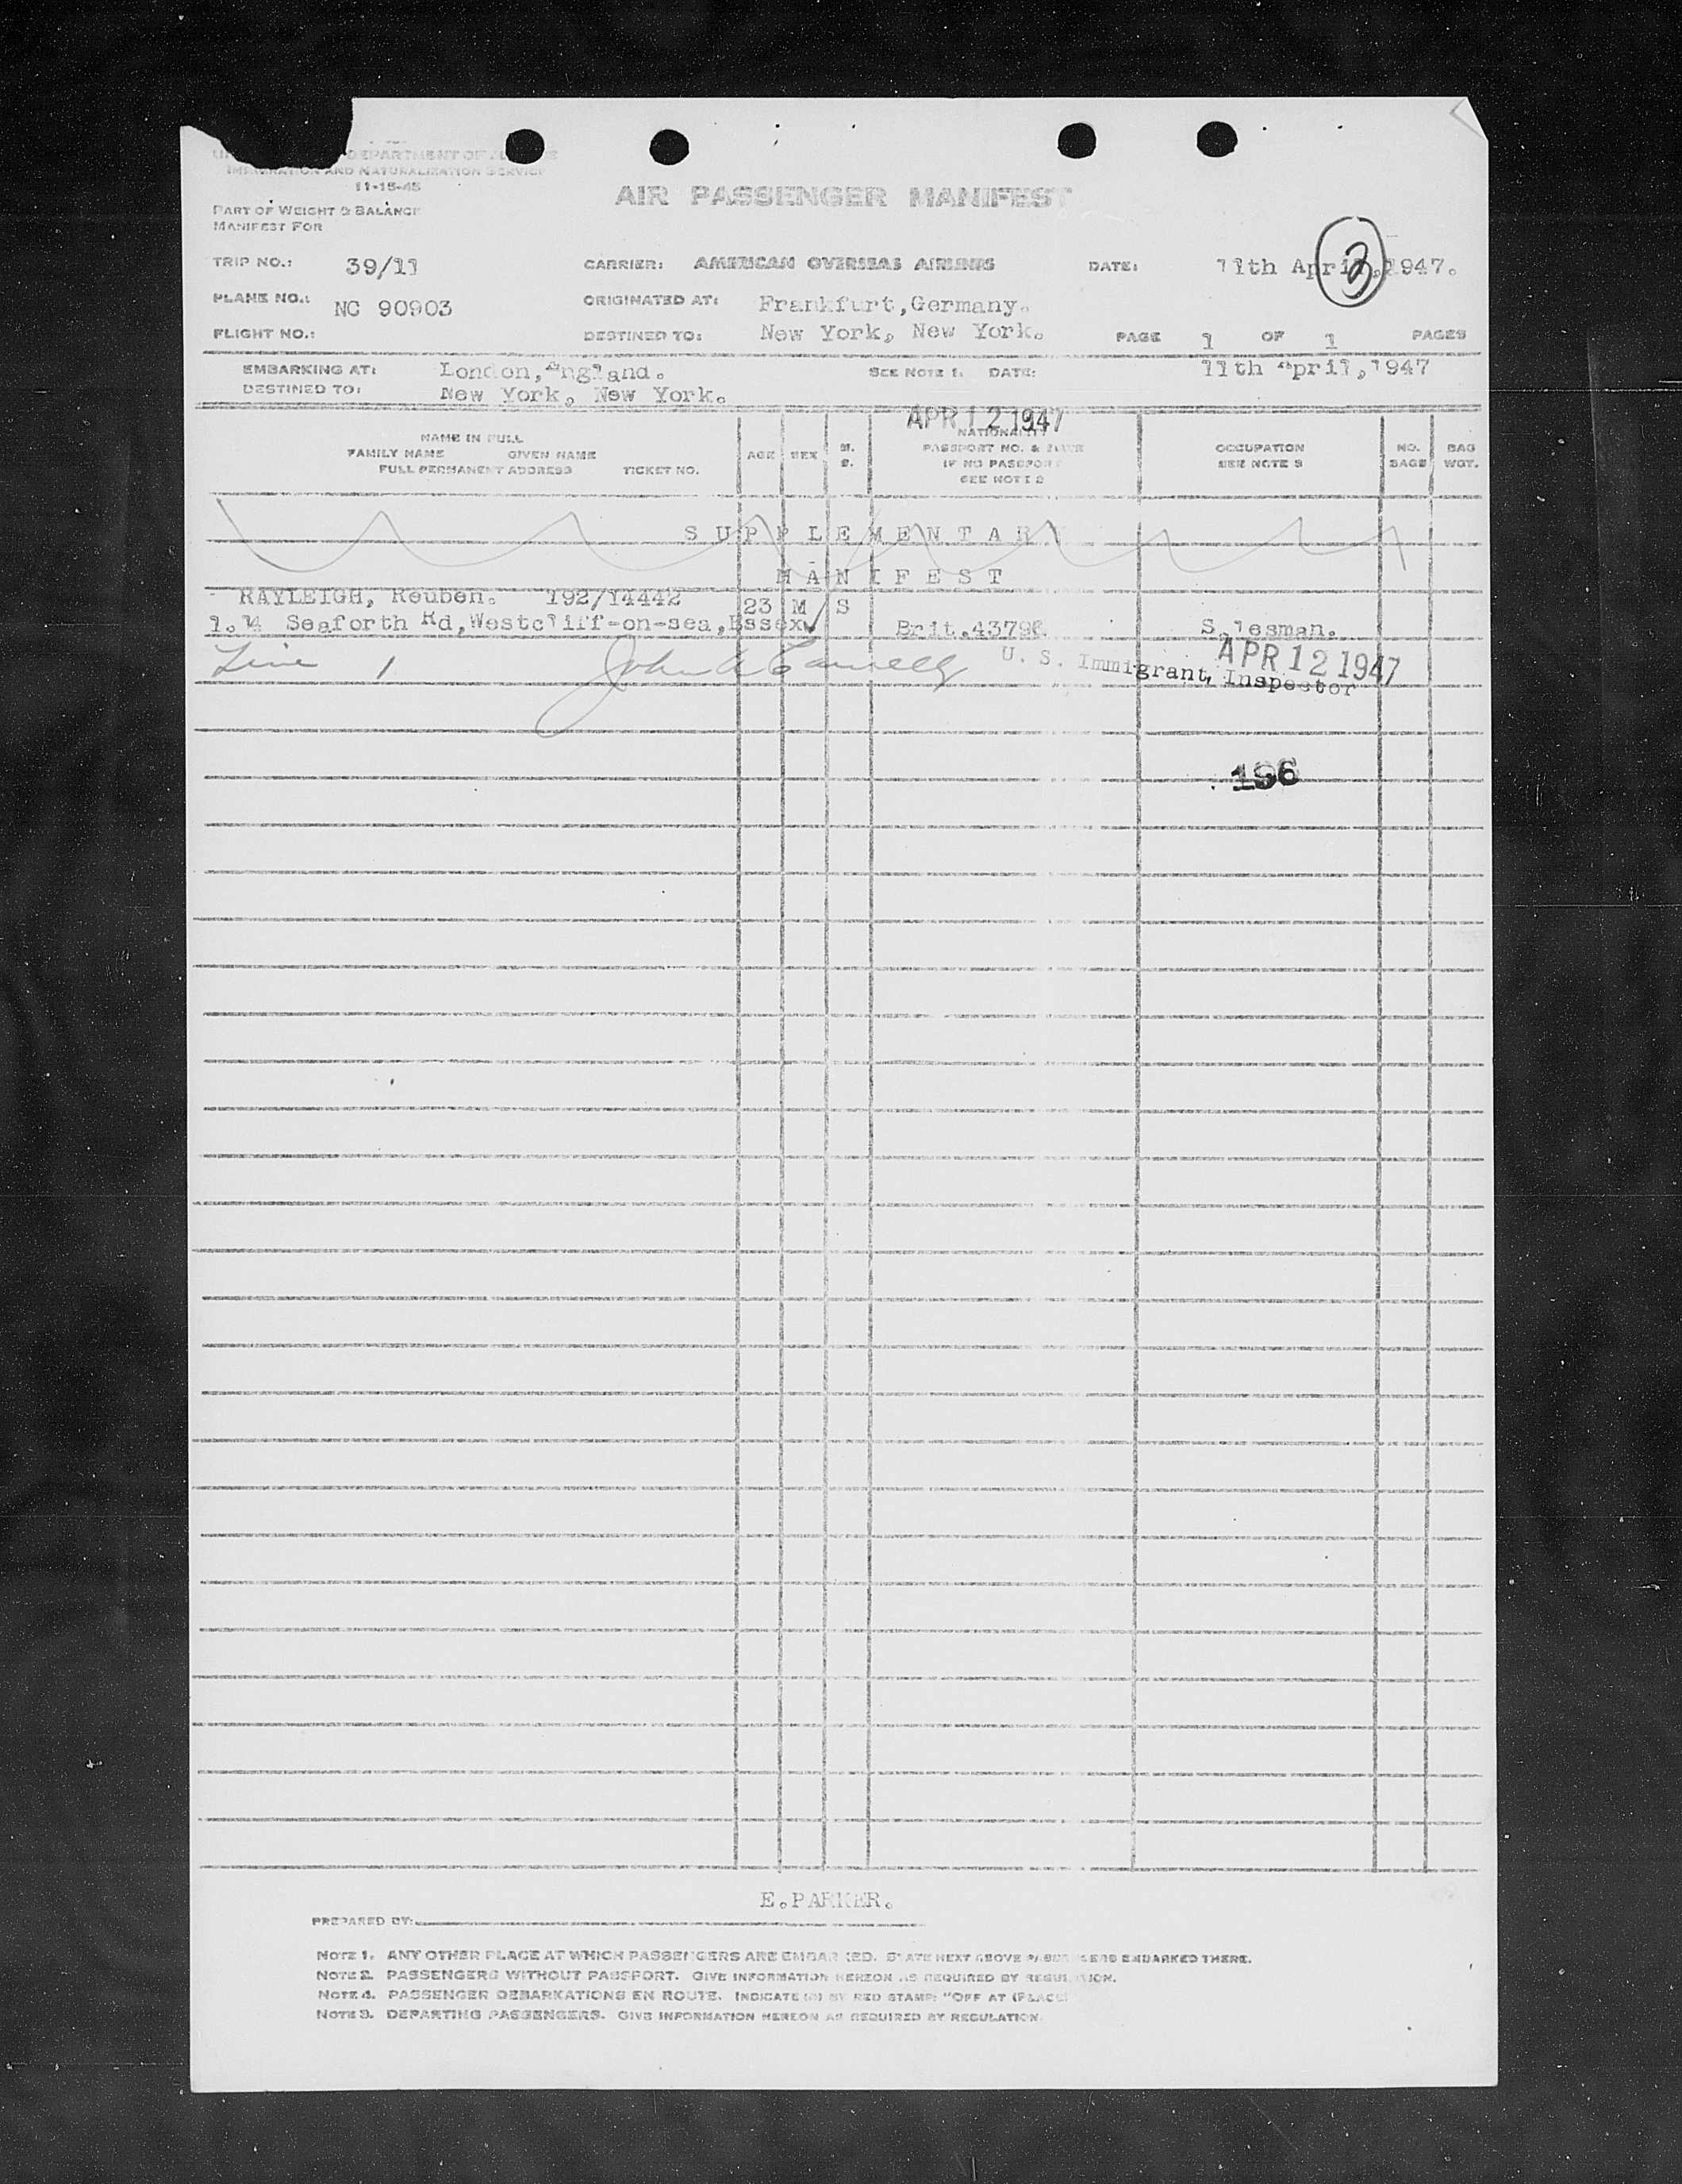 DEPARTMENT OF
IMMIGRATION AND NATURALIZATION SERVICE
11-15-45
AIR PASSENGER MANIFEST
PART OF WEIGHT & BALANCE
MANIFEST FOR
3
TRIP NO.: 39/11 CARRIER: AMERICAN OVERSEAS AIRLINES DATE: 11th April, 1947.
PLANE NO.: NC 90903 ORIGINATED AT: Frankfurt, Germany.
FLIGHT NO.: DESTINED TO: New York, New York. PAGE 1 OF 1 PAGES
EMBARKING AT: London, England. SEE NOTE 1. DATE: 11th April, 1947
DESTINED TO: New York, New York.
APR 12 1947
NAME IN FULL
FAMILY NAME GIVEN NAME
FULL PERMANENT ADDRESS TICKET NO.
AGE SEX M. S.
NATIONALITY
PASSPORT NO. &
IF NO PASSPORT
SEE NOTE 2
OCCUPATION
SEE NOTE 3
NO. BAGS
BAG WGT.
SUPPLEMENTARY
MANIFEST
RAYLEIGH, Reuben. 192/14442 23 M S
1. 14 Seaforth Rd, Westcliff-on-sea, Essex. Brit. 43796 Salesman.
Line 1 John A U. S. Immigrant Inspector APR 12 1947
196
E. PARKER.
PREPARED BY:
NOTE 1. ANY OTHER PLACE AT WHICH PASSENGERS ARE EMBARKED. STATE NEXT ABOVE PASSENGERS EMBARKED THERE.
NOTE 2. PASSENGERS WITHOUT PASSPORT. GIVE INFORMATION HEREON AS REQUIRED BY REGULATION.
NOTE 4. PASSENGER DEBARKATIONS EN ROUTE. INDICATE BY RED STAMP: "OFF AT (PLACE)
NOTE 3. DEPARTING PASSENGERS. GIVE INFORMATION HEREON AS REQUIRED BY REGULATION.